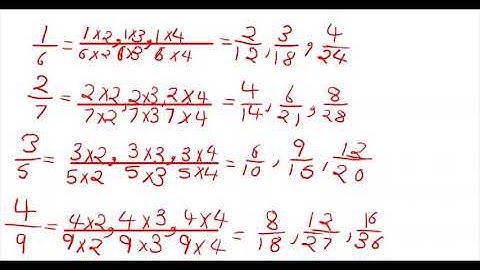 1/6 = 1×2/6×2, 1×3/6×3, 1×4/6×4 = 2/12, 3/18, 4/24
2/7 = 2×2/7×2, 2×3/7×3, 2×4/7×4 = 4/14, 6/21, 8/28
3/5 = 3×2/5×2, 3×3/5×3, 3×4/5×4 = 6/10, 9/15, 12/20
4/9 = 4×2/9×2, 4×3/9×3, 4×4/9×4 = 8/18, 12/27, 16/36